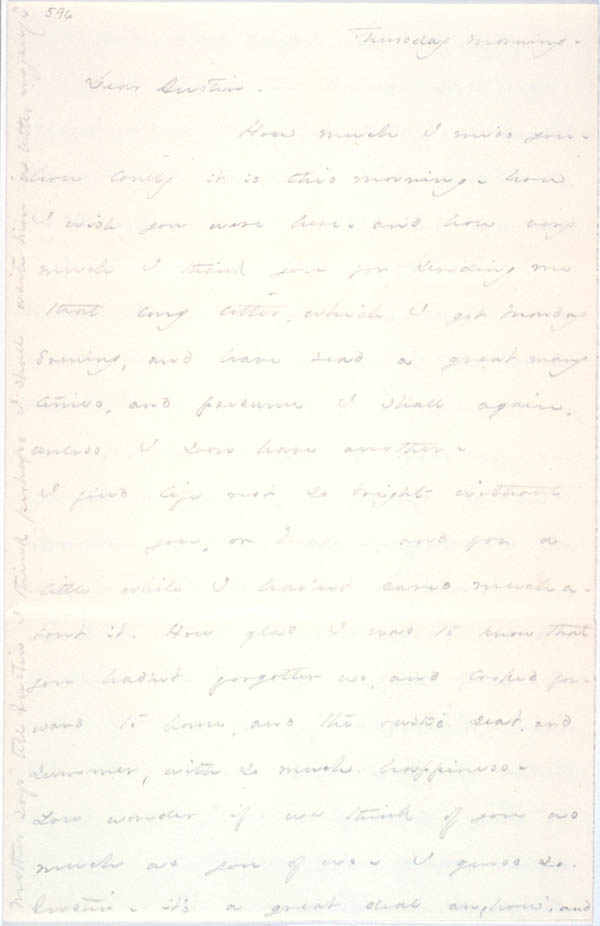 596
Thursday morning.
Dear Austin.
How much I miss you -
how lonely it is this morning - how
I wish you were here, and how very
much I thank you for sending me
that long letter, which I got Monday
Evening, and have read a great many
times, and presume I shall again,
unless I soon have another -
I find life not so bright without
you, or and for a
little while I had'nt cared much a-
bout it. How glad I was to know that
you had'nt forgotten us, and looked for-
ward to home, and the rustic seat, and
summer, with so much happiness -
You wonder if we think of you as
much as you of us - I guess so,
Austin - it's a great deal anyhow, and
Mother says tell Austin I think perhaps I shall write him a letter myself